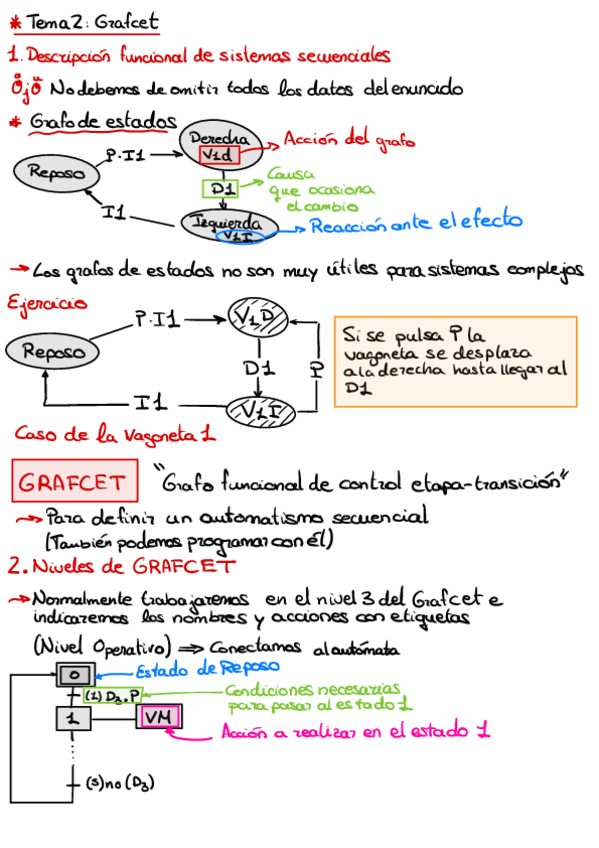 * Tema 2: Grafcet
1. Descripción funcional de sistemas secuenciales
Ojo No debemos de omitir todos los datos del enuncido
* Grafo de estados
Derecha
V1d
Acción del grafo
P·I1
Reposo
D1
Causa
que ocasiona
el cambio
I1
Izquierda
V1I
Reacción ante el efecto
→ Los grafos de estados no son muy útiles para sistemas complejos
Ejercicio
P·I1
V1D
Reposo
D1
P
I1
V1I
Si se pulsa P la
vagoneta se desplaza
a la derecha hasta llegar al
D1
Caso de la Vagoneta 1
GRAFCET
"Grafo funcional de control etapa-transición"
→ Para definir un automatismo secuencial
(También podemos programar con él)
2. Niveles de GRAFCET
→ Normalmente trabajaremos en el nivel 3 del Grafcet e
indicaremos los nombres y acciones con etiquetas
(Nivel Operativo) ⇒ Conectamos al autómata
0
Estado de Reposo
(1) D2·P
Condiciones necesarias
para pasar al estado 1
1
VM
Acción a realizar en el estado 1
(s) no (D3)